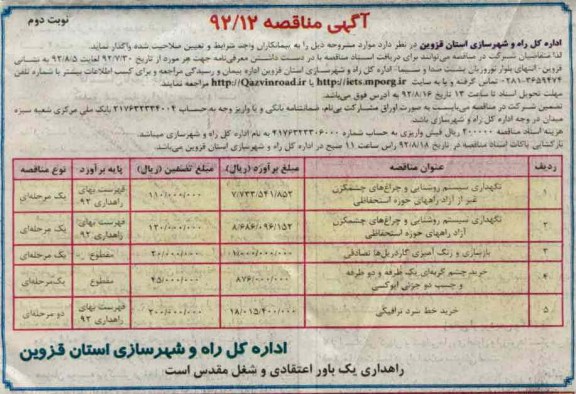 آگهی مناقصه ۹۲/۱۲
نوبت دوم
اداره کل راه و شهرسازی استان قزوین در نظر دارد موارد مشروحه ذیل را به پیمانکاران واجد شرایط و تعیین صلاحیت شده واگذار نماید.
لذا متقاضیان شرکت در مناقصه می‌توانند برای دریافت اسناد مناقصه با در دست داشتن معرفی‌نامه جهت هر مورد از تاریخ ۹۲/۷/۳۰ لغایت ۹۲/۸/۵ به نشانی
قزوین - انتهای بلوار نوروزیان پشت صدا و سیما - اداره کل راه و شهرسازی استان قزوین اداره پیمان و رسیدگی مراجعه و برای کسب اطلاعات بیشتر با شماره تلفن
۰۲۸۱-۳۶۵۹۴۷۴ تماس گرفته و یا به سایت http://iets.mporg.ir یا http://Qazvinroad.ir مراجعه نمایند.
مهلت تحویل اسناد تا ساعت ۱۳ تاریخ ۹۲/۸/۱۶ به آدرس فوق می‌باشد.
تضمین شرکت در مناقصه می‌بایست به صورت اوراق مشارکت بی‌نام، ضمانتنامه بانکی و یا واریز وجه به حساب ۲۱۷۶۳۲۳۳۴۰۰۴ بانک ملی مرکزی شعبه سبزه
میدان در وجه اداره کل راه و شهرسازی باشد.
هزینه اسناد مناقصه ۲۰۰۰۰۰ ریال فیش واریزی به حساب شماره ۲۱۷۶۳۲۲۳۰۶۰۰۰ به نام اداره کل راه و شهرسازی میباشد.
بازگشایی پاکات اسناد مناقصه در تاریخ ۹۲/۸/۱۸ راس ساعت ۱۱ صبح در اداره کل راه و شهرسازی استان قزوین می‌باشد.
ردیف عنوان مناقصه مبلغ برآورد (ریال) مبلغ تضمین (ریال) پایه برآورد نوع مناقصه
۱ نگهداری سیستم روشنایی و چراغ‌های چشمکزن غیر از آزاد راههای حوزه استحفاظی ۷/۷۳۳/۵۴۱/۸۵۲ ۱۱۰/۰۰۰/۰۰۰ فهرست بهای راهداری ۹۲ یک مرحله‌ای
۲ نگهداری سیستم روشنایی و چراغ‌های چشمکزن آزاد راههای حوزه استحفاظی ۸/۶۸۶/۰۹۶/۱۵۲ ۱۲۰/۰۰۰/۰۰۰ فهرست بهای راهداری ۹۲ یک مرحله‌ای
۳ بازسازی و رنگ آمیزی گاردریل‌ها تصادفی ۱/۰۰۰/۰۰۰/۰۰۰ ۲۰/۰۰۰/۰۰۰ مقطوع یک مرحله‌ای
۴ خرید چشم گربه‌ای یک طرفه و دو طرفه و چسب دو جزئی اپوکسی ۸۷۶/۰۰۰/۰۰۰ ۴۵/۰۰۰/۰۰۰ مقطوع یک مرحله‌ای
۵ خرید خط سرد ترافیکی ۱۸/۰۱۵/۴۰۰/۰۰۰ ۲۰۰/۰۰۰/۰۰۰ فهرست بهای راهداری ۹۲ دو مرحله‌ای
اداره کل راه و شهرسازی استان قزوین
راهداری یک باور اعتقادی و شغل مقدس است